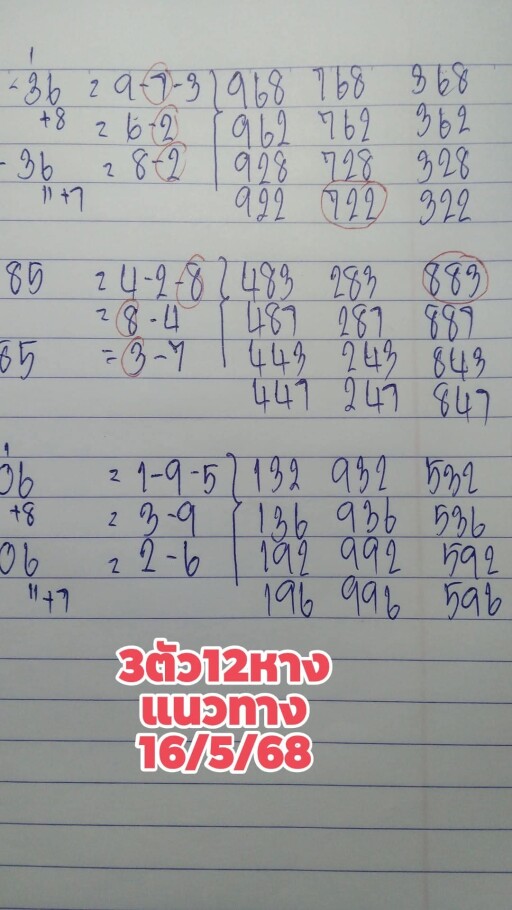 1
-36 = 9-7-3 } 968 768 368
+8 = 6-2 962 762 362
-36 = 8-2 928 728 328
11+7 922 722 322
85 = 4-2-8 } 483 283 883
= 8-4 487 287 887
85 = 3-7 443 243 843
447 247 847
1
06 = 1-9-5 } 132 932 532
+8 = 3-9 136 936 536
06 = 2-6 192 992 592
11+7 196 996 596
3ตัว12หาง
แนวทาง
16/5/68